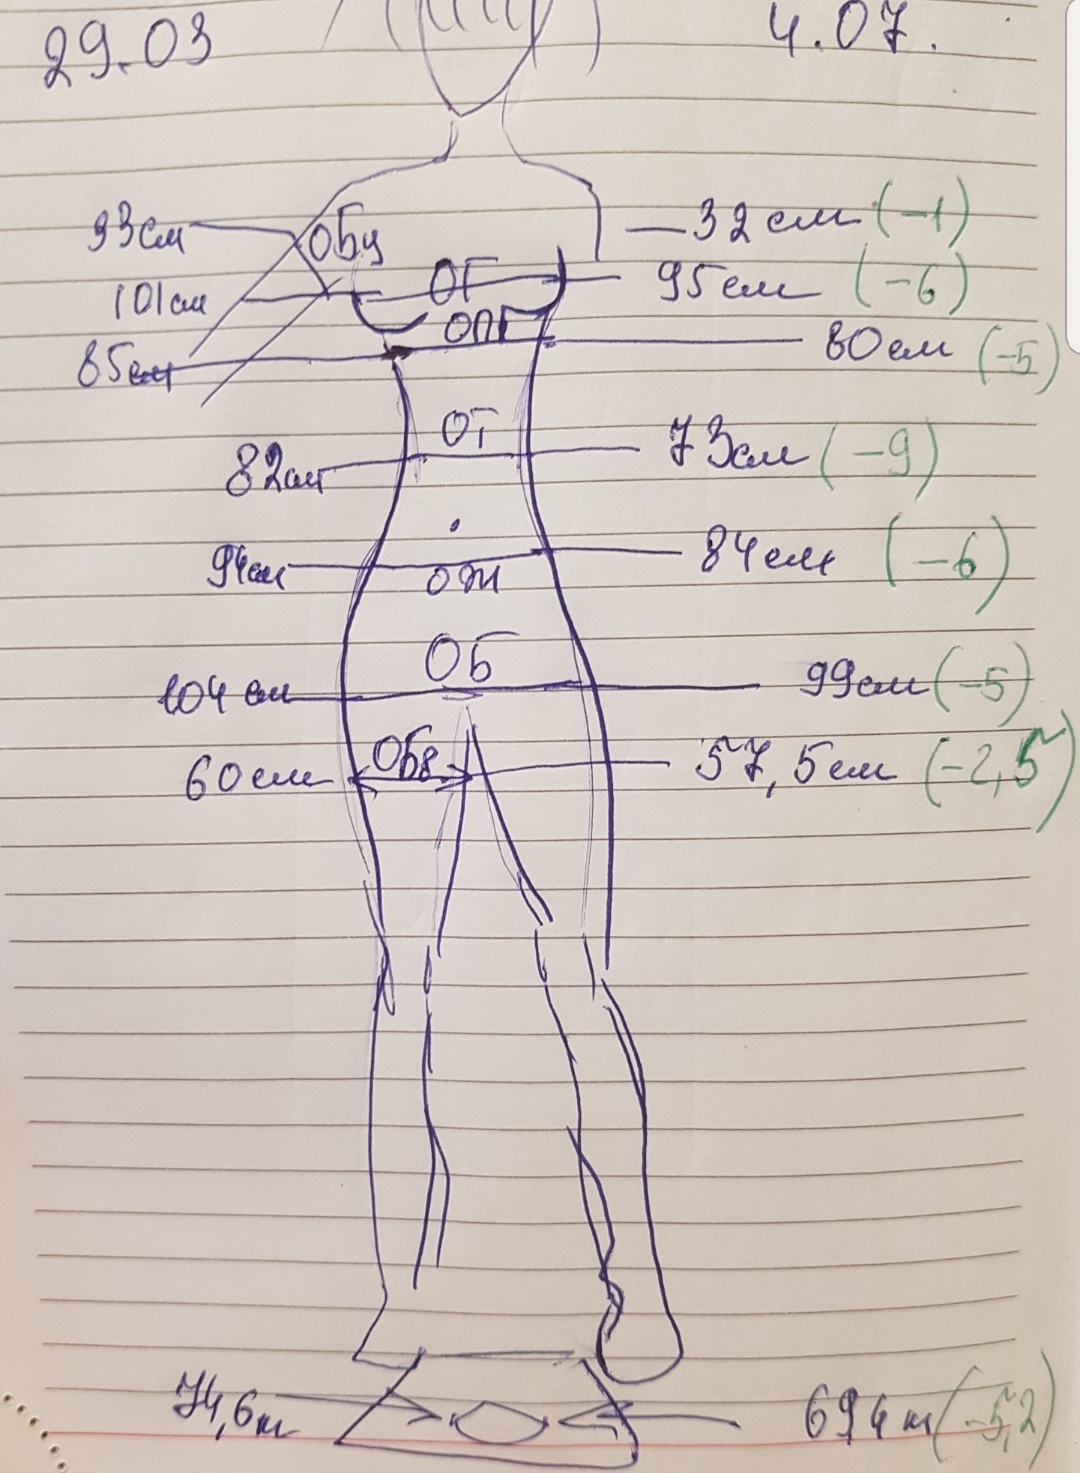 29.03 4.07.
33см ОБц 32 см (-1)
101см ОГ 95см (-6)
85см ОПГ 80см (-5)
82см ОТ 73см (-9)
94см ОЖ 84см (-6)
104 см ОБ 99см (-5)
60см Обб. 57,5см (-2,5)
74,6кг 69,4кг (-5,2)